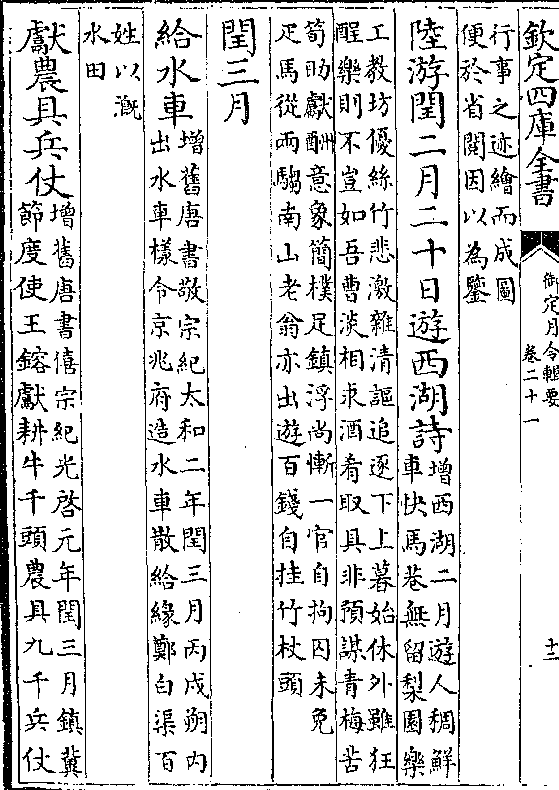 欽定四庫全書
御定月令輯要
卷二十一
十二
行事之迹繪而成圖
便於省閱因以為鑒
陸游閏二月二十日遊西湖詩
增西湖二月遊人稠鮮
車快馬巷無留梨園樂
工教坊優絲竹悲激雜清謳追逐下上暮始休外雖狂
醒樂則不豈如吾曹淡相求酒肴取具非預謀青梅苦
筍助獻酬意象簡樸足鎮浮尚慚一官自拘囚未免
疋馬從兩騶南山老翁亦出遊百錢自挂竹杖頭
閏三月
給水車
增舊唐書敬宗紀太和二年閏三月丙戌朔内
出水車樣令京兆府造水車散給緣鄭白渠百
姓以溉
水田
獻農具兵仗
增舊唐書僖宗紀光啓元年閏三月鎮冀
節度使王鎔獻耕牛千頭農具九千兵仗